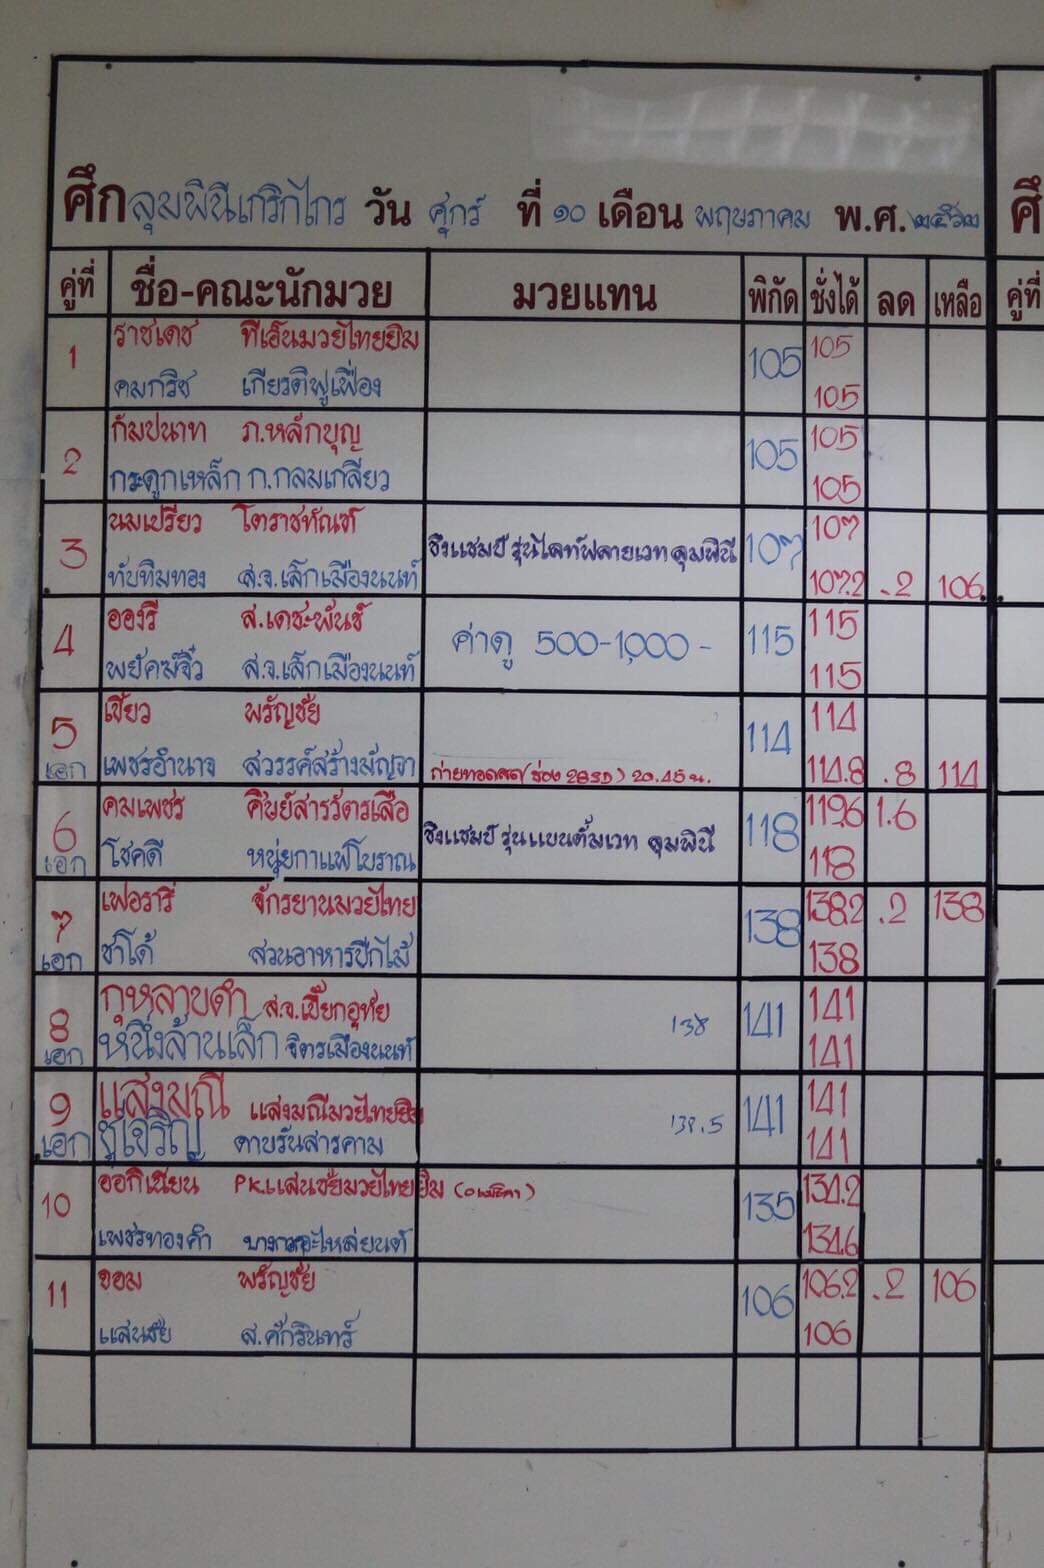 ศึกลุมพินีเกริกไกร วัน ศุกร์ ที่ ๑๐ เดือน พฤษภาคม พ.ศ. ๒๕๖๒
คู่ที่ ชื่อ-คณะนักมวย มวยแทน พิกัด ชั่งได้ ลด เหลือ
คู่ที่
1 ราชเดช ทีเอ็นมวยไทยยิม 105 105
คมกริช เกียรติฟูเฟื่อง 105
2 กัมปนาท ภ.หลักบุญ 105 105
กระดูกเหล็ก ก.กลมเกลียว 105
3 นมเปรี้ยว โตราชทัณฑ์ ชิงแชมป์ รุ่นไลท์ฟลายเวท ลุมพินี 107 107
ทับทิมทอง ส.จ.เล็กเมืองนนท์ 107.2 .2 106
4 อองรี ส.เดชะพันธ์ ค่าดู 500-1,000 - 115 115
พยัคฆ์จิ๋ว ส.จ.เล็กเมืองนนท์ 115
5 เขี้ยว พรัญชัย 114 114
เอก เพชรอำนาจ สวรรค์สร้างมัญจา ถ่ายทอดสด (ช่อง 28SD) 20.45 น. 114.8 .8 114
6 คมเพชร ศิษย์สารวัตรเสือ ชิงแชมป์ รุ่นแบนตั้มเวท ลุมพินี 118 119.6 1.6
เอก โชคดี หนุ่ยกาแฟโบราณ 118
7 เฟอรารี่ จักรยานมวยไทย 138 138.2 .2 138
เอก ซาโต้ สวนอาหารปีกไม้ 138
8 กุหลาบดำ ส.จ.เปี๊ยกอุทัย 138 141 141
เอก หนึ่งล้านเล็ก จิตรเมืองนนท์ 141
9 แสงมณี แสงมณีมวยไทยยิม 138.5 141 141
เอก งูเจริญ ดาบรันสารคาม 141
10 PK.แสนชัยมวยไทยยิม 135 134.2
เพชรทองคำ 134.6
11 จอม พรัญชัย 106 106.2 .2 106
แสนชัย ส.ศักรินทร์ 106